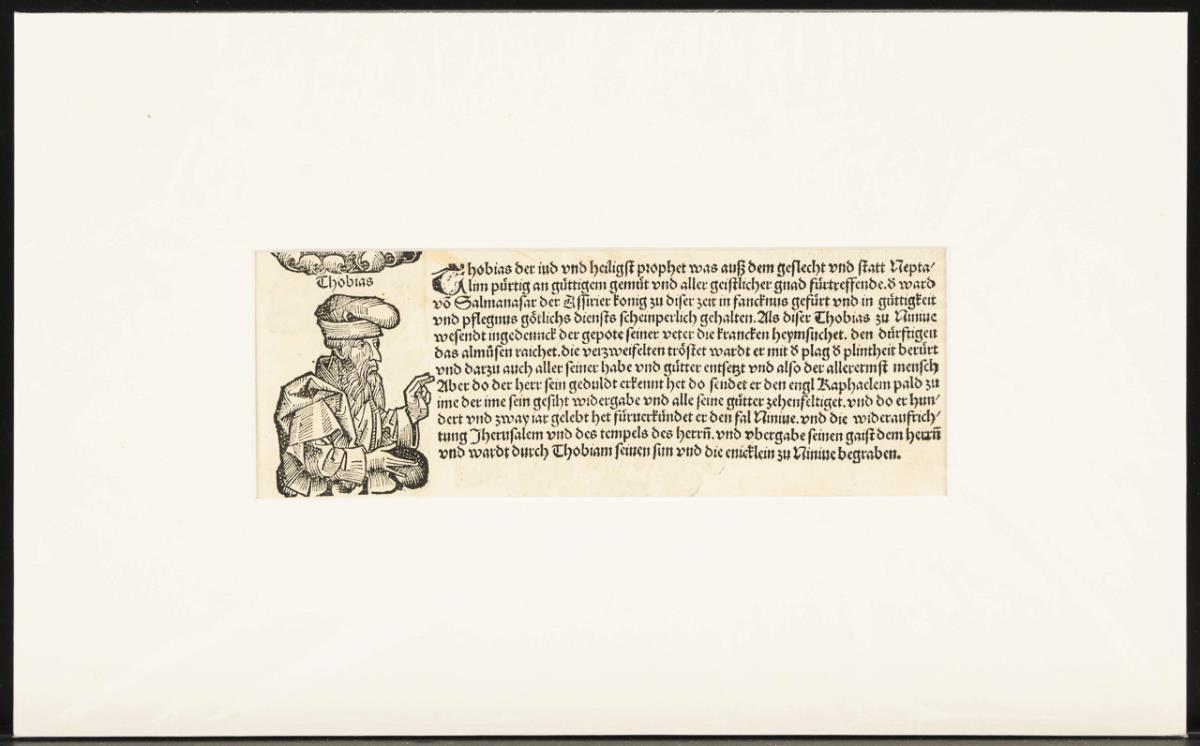 Thobias
Thobias der iud vnd heiligst prophet was auß dem geslecht vnd statt Nepta/
lim pürtig an güttigem gemüt vnd aller geistlicher gnad fürtreffende. d̕ ward
võ Salmanasar der Assirier konig zu diser zeit in fancknus gefürt vnd in güttigkeit
vnd pflegnus götlichs diensts scheinperlich gehalten. Als diser Thobias zu Niniue
wesendt ingedennck der gepote seiner veter die krancken heymsuchet. den dürftigen
das almůsen raichet. die verzweifelten tröstet wardt er mit d̕ plag d̕ plintheit berürt
vnd darzu auch aller seiner habe vnd gütter entsetzt vnd also der allerermst mensch
Aber do der herr sein geduldt erkennt het do sendet er den engl Raphaelem pald zu
ime der ime sein gesiht widergabe vnd alle seine gütter zehenfeltiget. vnd do er hun/
dert vnd zway iar gelebt het fürverkündet er den fal Niniue. vnd die wideraufrich/
tung Jherusalem vnd des tempels des herrñ. vnd vbergabe seinen gaist dem herrñ
vnd wardt durch Thobiam seinen sun vnd die enicklein zu Niniue begraben.